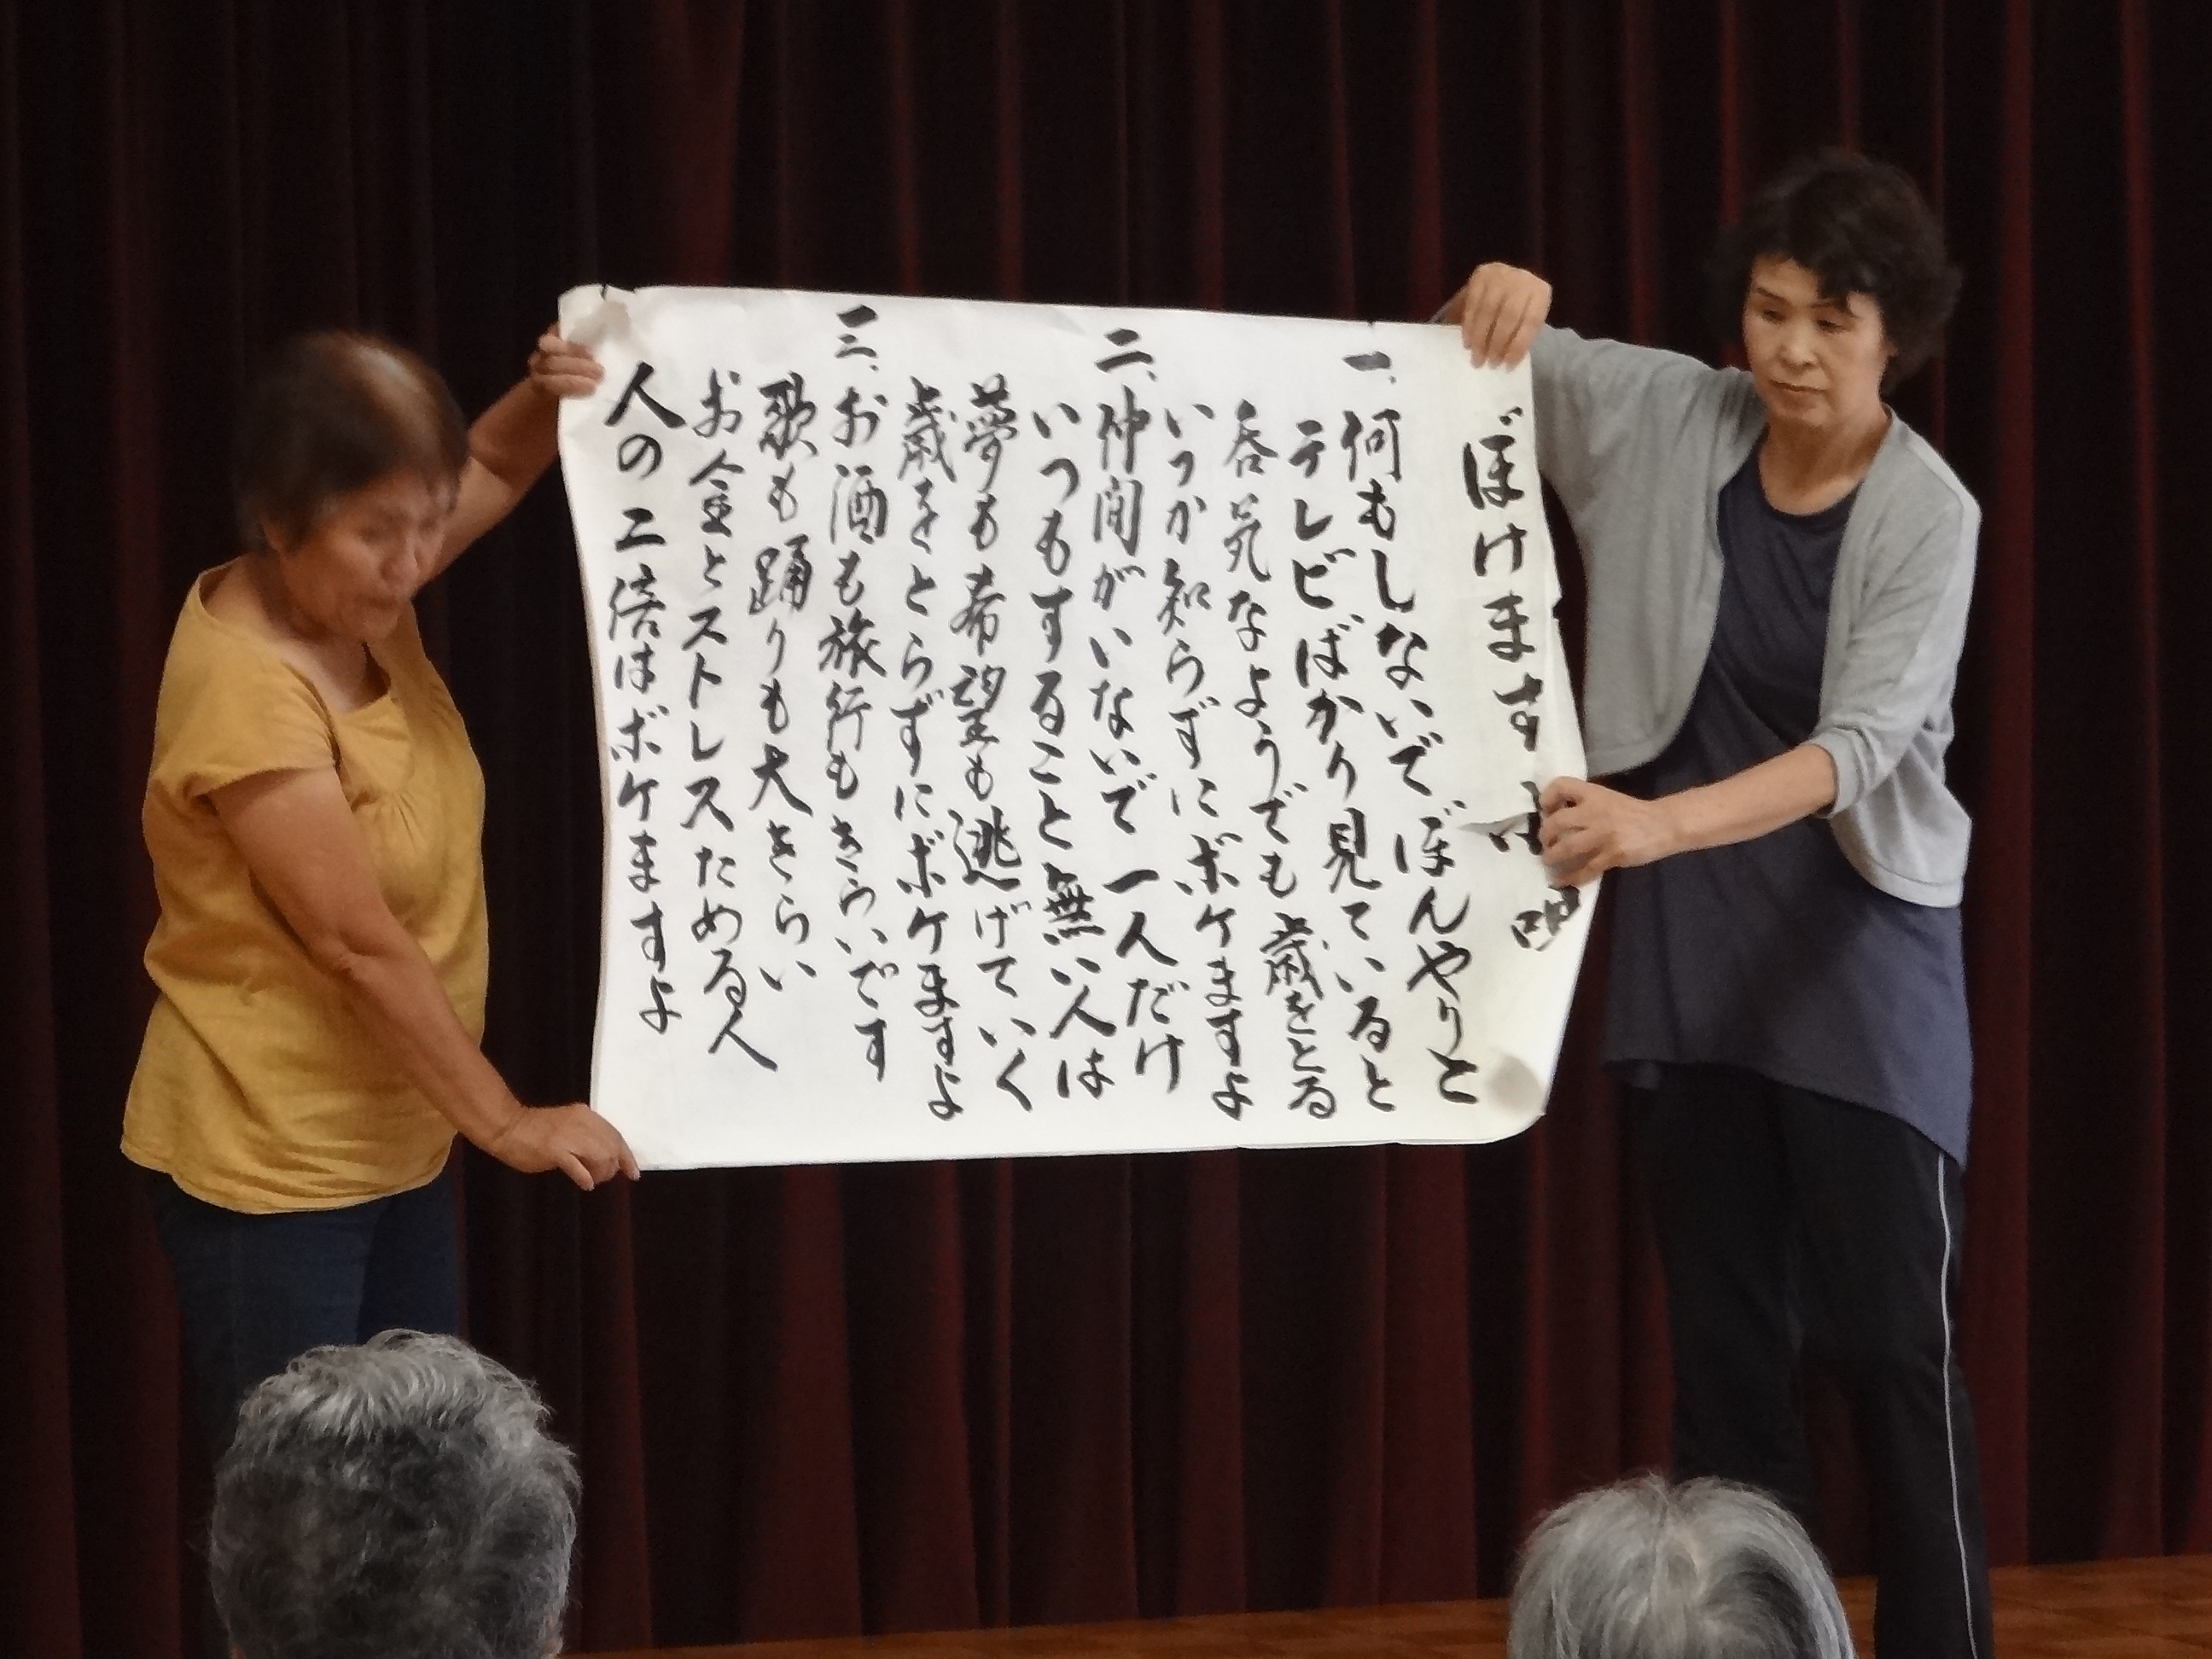 ぼけます
一、何もしないでぼんやりと
テレビばかり見ていると
呑気なようでも歳をとる
いつか知らずにボケますよ
二、仲間がいないで一人だけ
いつもすること無い人は
夢も希望も逃げていく
歳をとらずにボケますよ
三、お酒も旅行もきらいです
歌も踊りも大きらい
お金とストレスためる人
人の二倍はボケますよ